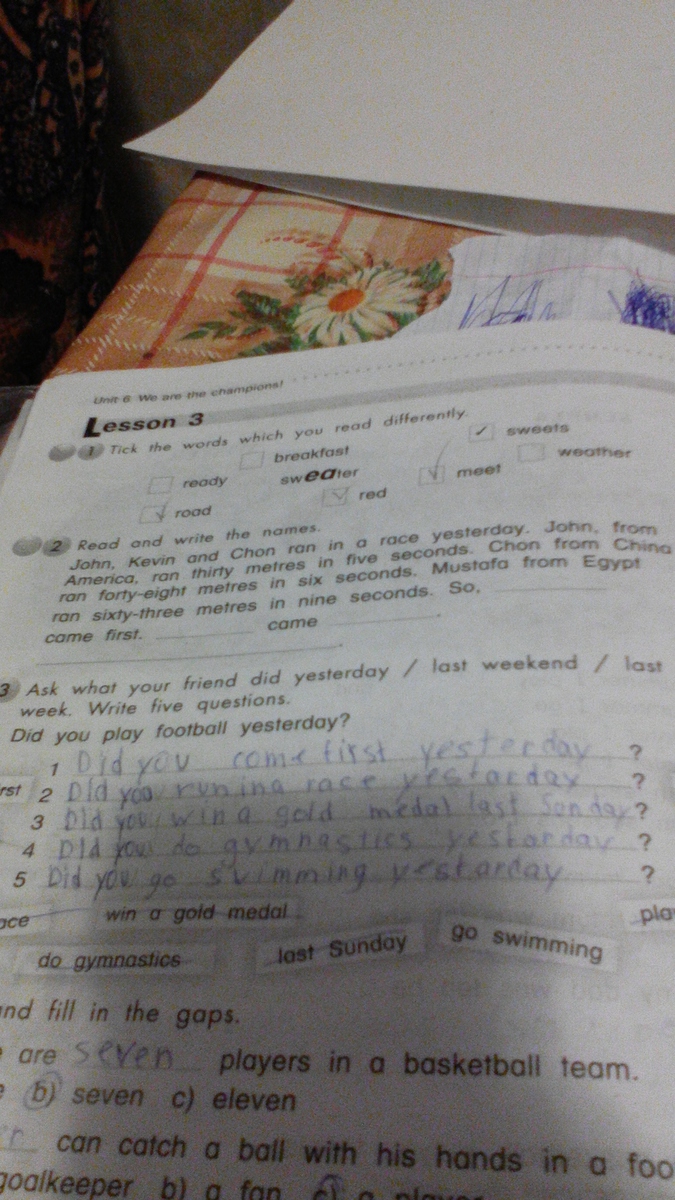 Unit 6 We are the champions!
Lesson 3
1 Tick the words which you read differently.
breakfast ✓ sweets
ready sweater meet weather
road red
2 Read and write the names.
John, Kevin and Chon ran in a race yesterday. John, from
America, ran thirty metres in five seconds. Chon from China
ran forty-eight metres in six seconds. Mustafa from Egypt
ran sixty-three metres in nine seconds. So, ____
came first. ____ came ____.
____.
3 Ask what your friend did yesterday / last weekend / last
week. Write five questions.
Did you play football yesterday?
1 Did you come first yesterday ?
rst 2 Did you run ina race yestarday ?
3 Did you win a gold medal last Sonday ?
4 DId you do gymnastics yestorday ?
5 Did you go svimming yestarday ?
ace win a gold medal pla
do gymnastics last Sunday go swimming
nd fill in the gaps.
e are seven players in a basketball team.
e b) seven c) eleven
er can catch a ball with his hands in a foo
goalkeeper b) a fan c) a player